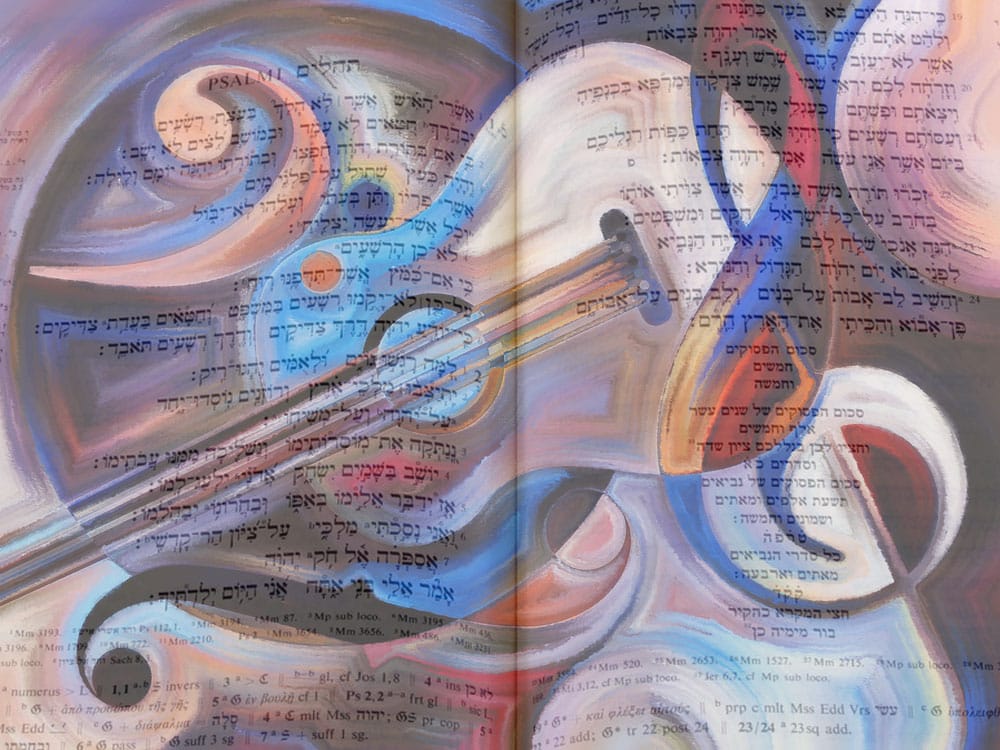 כִּי־הִנֵּה הַיּוֹם בָּא בֹּעֵר כַּתַּנּוּר וְהָיוּ כָל־זֵדִים
19
וְלִהַט אֹתָם הַיּוֹם הַבָּא אָמַר יְהוָה צְבָאוֹת
אֲשֶׁר לֹא־יַעֲזֹב לָהֶם שֹׁרֶשׁ וְעָנָף׃
וְזָרְחָה לָכֶם יִרְאֵי שְׁמִי שֶׁמֶשׁ צְדָקָה וּמַרְפֵּא בִּכְנָפֶיהָ
20
וִיצָאתֶם וּפִשְׁתֶּם כְּעֶגְלֵי מַרְבֵּק׃
וְעַסּוֹתֶם רְשָׁעִים כִּי־יִהְיוּ אֵפֶר תַּחַת כַּפּוֹת רַגְלֵיכֶם
בַּיּוֹם אֲשֶׁר אֲנִי עֹשֶׂה אָמַר יְהוָה צְבָאוֹת׃ פ
זִכְרוּ תּוֹרַת מֹשֶׁה עַבְדִּי אֲשֶׁר צִוִּיתִי אוֹתוֹ
בְחֹרֵב עַל־כָּל־יִשְׂרָאֵל חֻקִּים וּמִשְׁפָּטִים׃
הִנֵּה אָנֹכִי שֹׁלֵחַ לָכֶם אֵת אֵלִיָּה הַנָּבִיא
לִפְנֵי בּוֹא יוֹם יְהוָה הַגָּדוֹל וְהַנּוֹרָא׃
וְהֵשִׁיב לֵב־אָבוֹת עַל־בָּנִים וְלֵב בָּנִים עַל־אֲבוֹתָם
24
פֶּן־אָבוֹא וְהִכֵּיתִי אֶת־הָאָרֶץ חֵרֶם׃
סכום הפסוקים
חמשים
וחמשה
סכום הפסוקים של שנים עשר
אלף וחמשים
וחציו לכן בגללכם ציון שדה
וסדרים כ̇א̇
סכום הפסוקים של נביאים
תשעת אלפים ומאתים
ושמונים וחמשה׃
ט̇ ר̇ פ̇ ה̇
כל סדרי הנביאים
מאתים וארבעה׃
ק̇ ק̇ ד̇
חצי המקרא כהקיר
בור מימיה כן
Mm 520. Mm 2653. Mm 1527. Mm 2715. Mp sub loco.
Mt 3,12, cf Mp sub loco. Jer 6,7, cf Mp sub loco.
G* + καὶ φλέξει αὐτούς ‖ b prp c mlt Mss Edd Vrs עשי
22 add; G* tr 22 post 24 ‖ 23/24 a 23sq add.
PSALMI תהלים
אַשְׁרֵי־הָאִישׁ אֲשֶׁר לֹא הָלַךְ בַּעֲצַת רְשָׁעִים
וּבְדֶרֶךְ חַטָּאִים לֹא עָמָד וּבְמוֹשַׁב לֵצִים לֹא יָשָׁב׃
כִּי אִם בְּתוֹרַת יְהוָה חֶפְצוֹ וּבְתוֹרָתוֹ יֶהְגֶּה יוֹמָם וָלָיְלָה׃
וְהָיָה כְּעֵץ שָׁתוּל עַל־פַּלְגֵי מָיִם
אֲשֶׁר פִּרְיוֹ יִתֵּן בְּעִתּוֹ וְעָלֵהוּ לֹא־יִבּוֹל
וְכֹל אֲשֶׁר־יַעֲשֶׂה יַצְלִיחַ׃
לֹא־כֵן הָרְשָׁעִים
כִּי אִם־כַּמֹּץ אֲשֶׁר־תִּדְּפֶנּוּ רוּחַ׃
עַל־כֵּן לֹא־יָקֻמוּ רְשָׁעִים בַּמִּשְׁפָּט וְחַטָּאִים בַּעֲדַת צַדִּיקִים׃
כִּי־יוֹדֵעַ יְהוָה דֶּרֶךְ צַדִּיקִים וְדֶרֶךְ רְשָׁעִים תֹּאבֵד׃
לָמָּה רָגְשׁוּ גוֹיִם וּלְאֻמִּים יֶהְגּוּ־רִיק׃
יִתְיַצְּבוּ מַלְכֵי־אֶרֶץ וְרוֹזְנִים נוֹסְדוּ־יָחַד
עַל־יְהוָה וְעַל־מְשִׁיחוֹ׃
3 נְנַתְּקָה אֶת־מוֹסְרוֹתֵימוֹ וְנַשְׁלִיכָה מִמֶּנּוּ עֲבֹתֵימוֹ׃
4 יוֹשֵׁב בַּשָּׁמַיִם יִשְׂחָק אֲדֹנָי יִלְעַג־לָמוֹ׃
5 אָז יְדַבֵּר אֵלֵימוֹ בְאַפּוֹ וּבַחֲרוֹנוֹ יְבַהֲלֵמוֹ׃
6 וַאֲנִי נָסַכְתִּי מַלְכִּי עַל־צִיּוֹן הַר־קָדְשִׁי׃
7 אֲסַפְּרָה אֶל חֹק יְהוָה
אָמַר אֵלַי בְּנִי אַתָּה אֲנִי הַיּוֹם יְלִדְתִּיךָ׃
Mm 3193. Ps 112,1. Mm 3194. Mm 87. Mp sub loco. Mm 3195. Mm 436.
Mm 3196. Mm 1799. Mm 772. Mm 2210. Ps 2 Mm 3654. Mm 3656. Mm 486. Mm 2231.
sub loco.
Sach 8,3.
numerus > L ‖ 1,1 a.b S invers ‖ 3 a > C ‖ b–b gl, cf Jos 1,8 ‖ 4 a ins לא כן
b G + ἀπὸ προσώπου τῆς γῆς ‖ 5 a G ἐν βουλῇ cf 1 ‖ Ps 2,2 a–a frt gl ‖
Mss Edd ‖ c G + διάψαλμα סלה ‖ 4 a C mlt Mss יהוה; GS pr cop
6 a G pass ‖ b G suff 3 sg ‖ 7 a S + suff 1 sg.